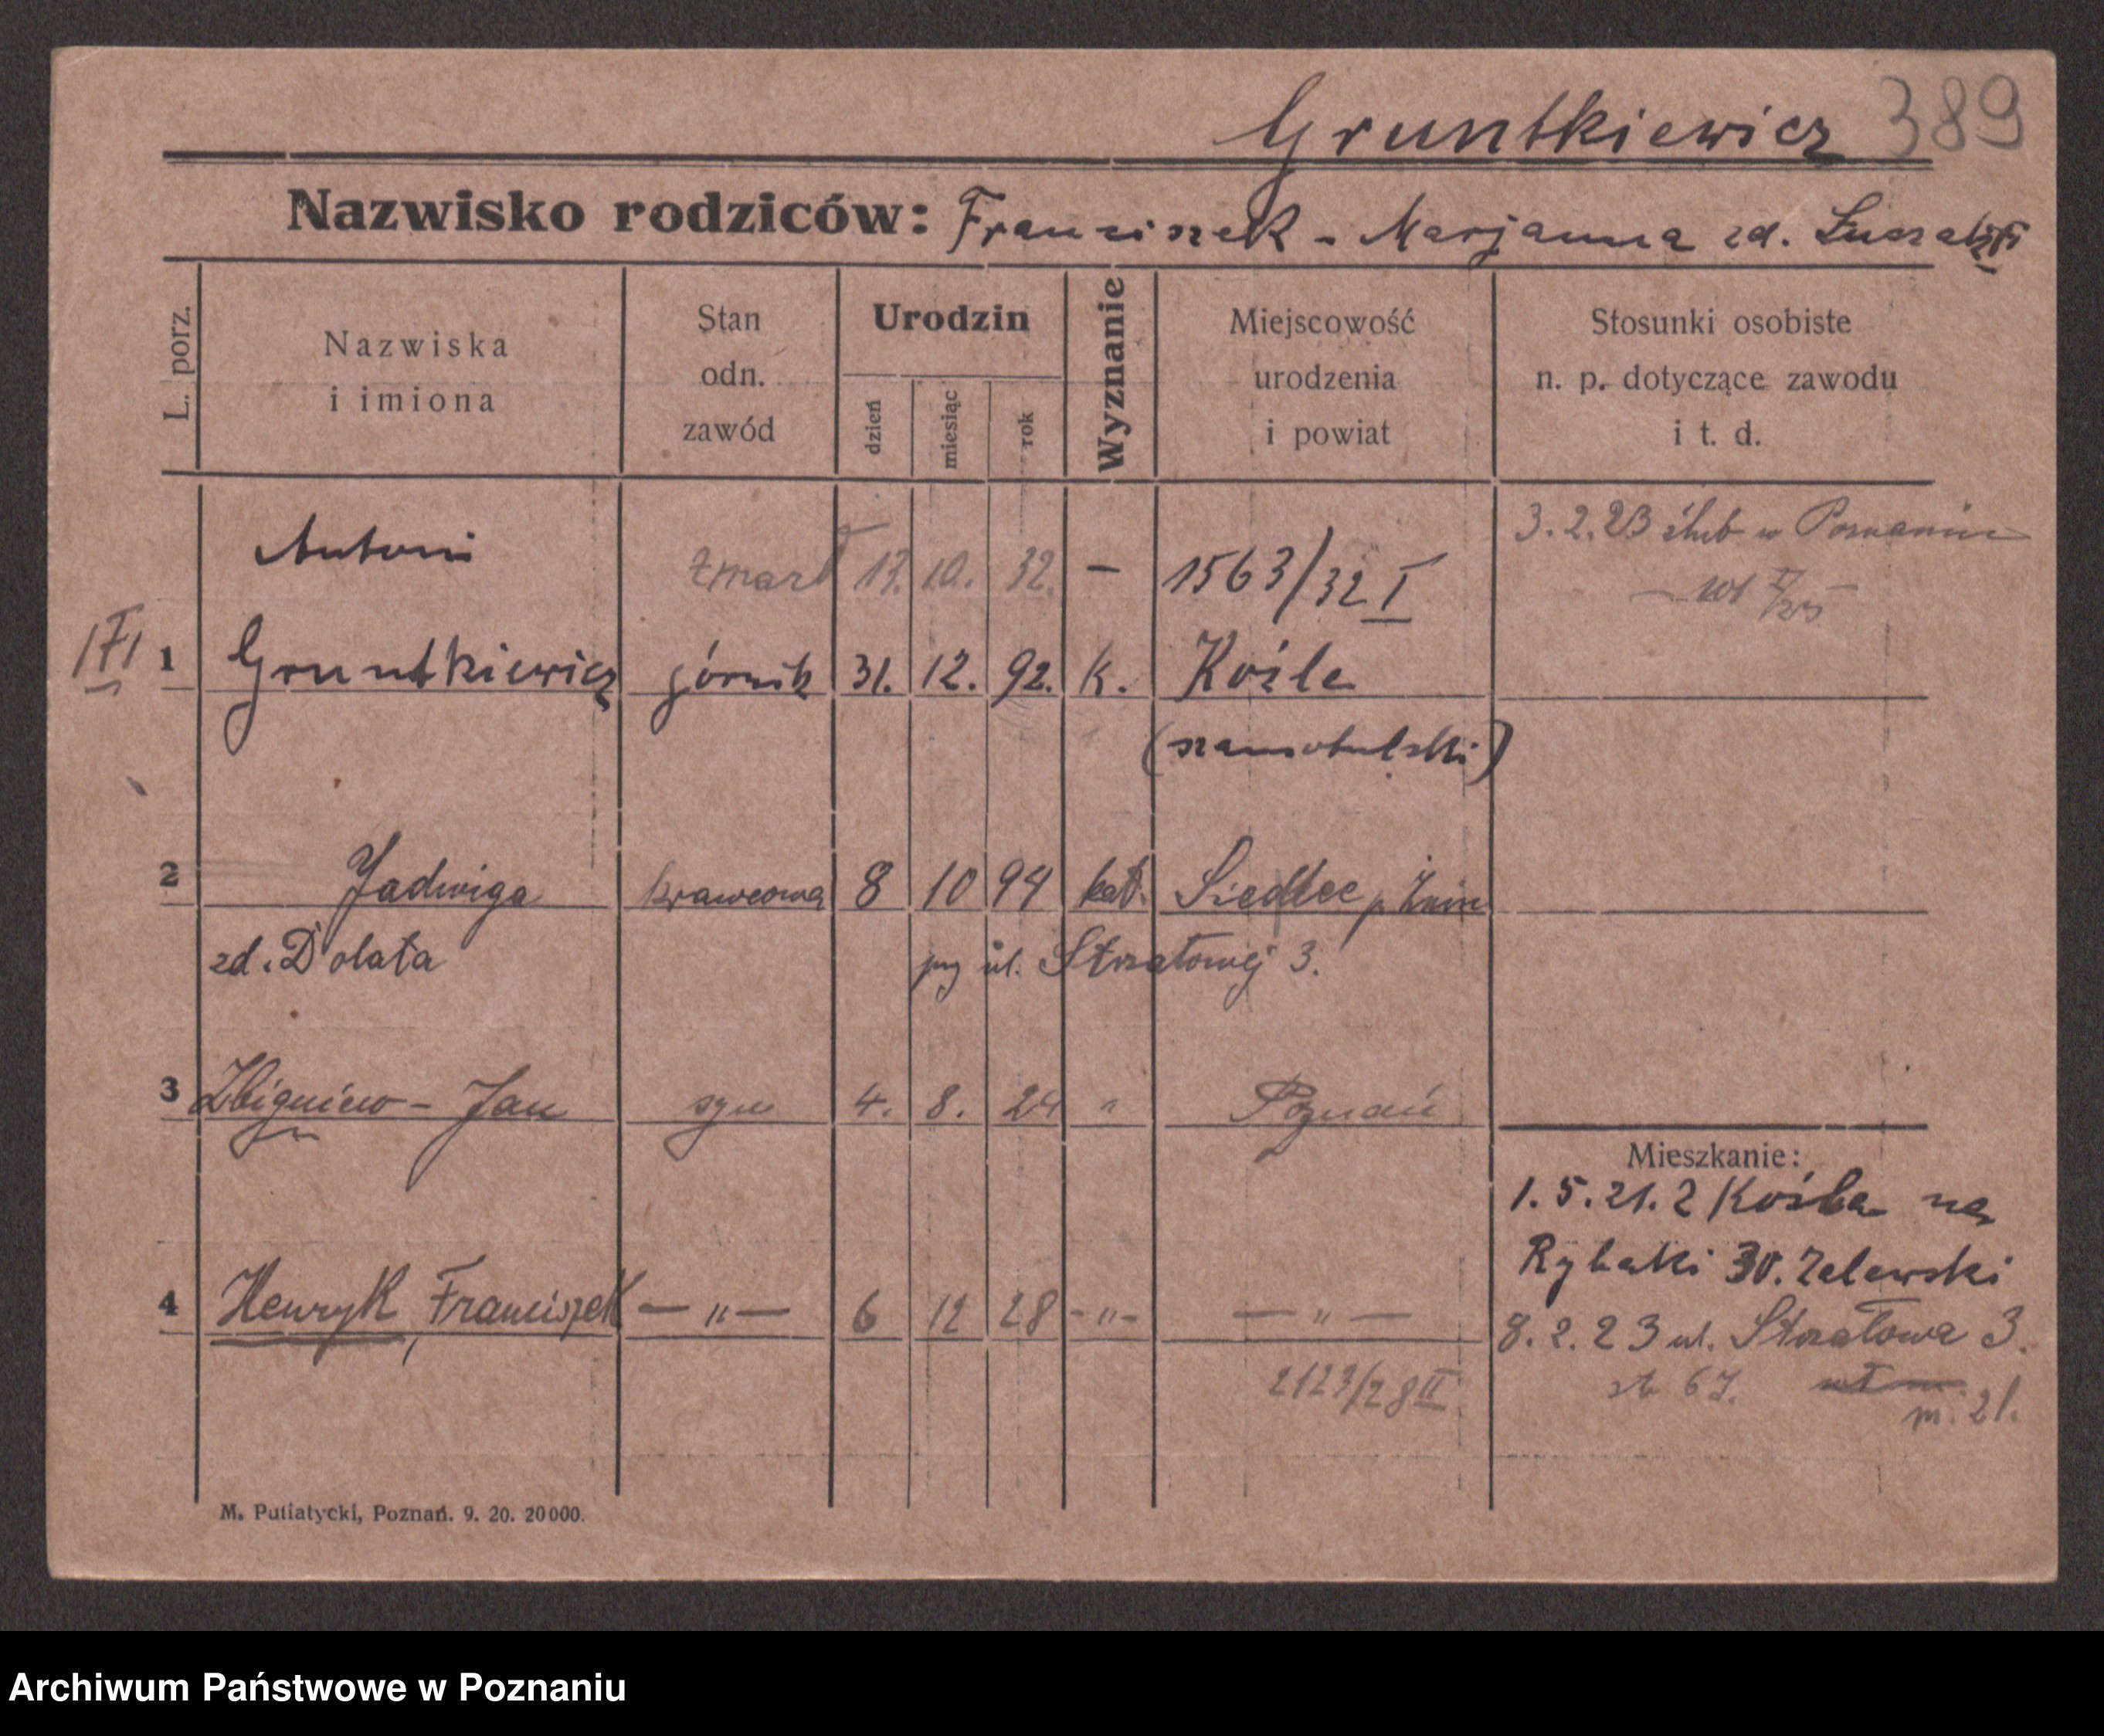 Gruntkiewicz 389
Nazwisko rodziców: Franciszek - Marjanna zd.
L. porz.
Nazwiska
i imiona
Stan
odn.
zawód
Urodzin
dzień
miesiąc
rok
Wyznanie
Miejscowość
urodzenia
i powiat
Stosunki osobiste
n. p. dotyczące zawodu
i t. d.
3.2.23 ślub w Poznaniu
Antoni zmarł 13. 10. 32. – 1563/32 I
1 Gruntkiewicz górnik 31. 12. 92. k. Koźle
(szamotulski)
2 Jadwiga krawcowa 8 10 94 kat. Siedlec p. Żnin
zd. Dolata ul. Strzałowej 3.
3 Zbigniew - Jan syn 4. 8. 24 " Poznań
Mieszkanie:
1.5.21. z Koźla na
Rybaki 30. Zalewski
4 Henryk, Franciszek — " — 6 12 28 - " - — " —
8.2.23 ul. Strzałowa 3.
2123/28 II
m. 21.
M. Putiatycki, Poznań. 9. 20. 20000.
Archiwum Państwowe w Poznaniu